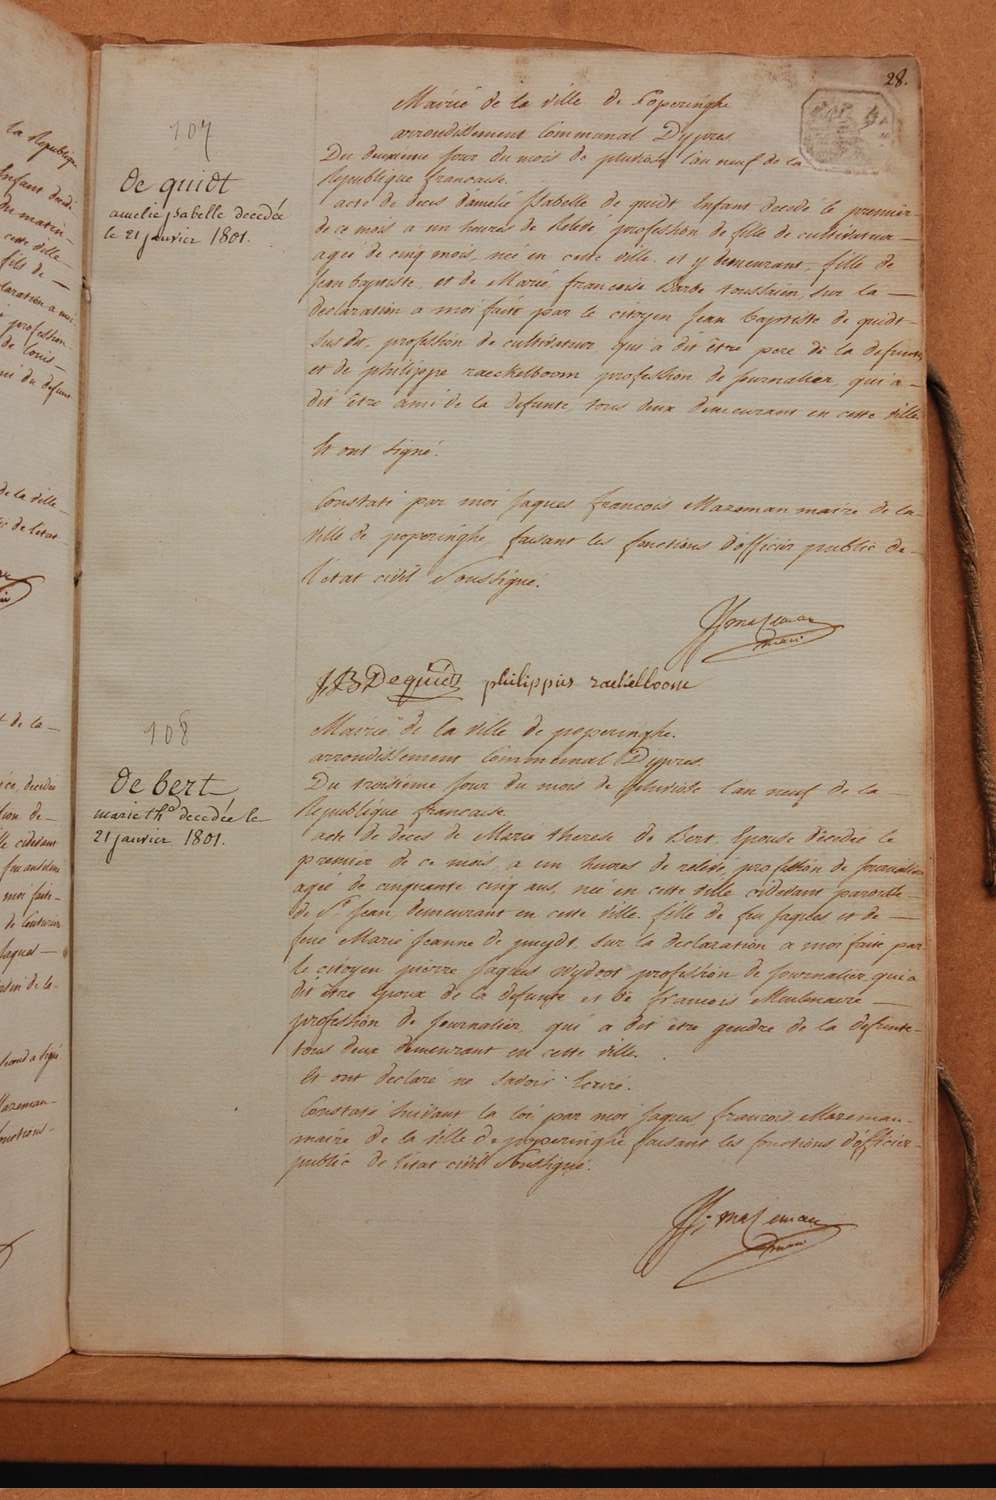 28.
107
de quidt
amelie isabelle decedée
le 21 janvier 1801.
Mairie de la ville de Poperinghe
arrondissement Communal Dypres
Du deuxieme jour du mois de pluviose l'an neuf de la
Republique francaise.
acte de deces damelie Isabelle de quidt Enfant decedé le premier
de ce mois a un heures de Relevé, profession de fille de cultivateur
agee de cinq mois, née en cette ville, et y demeurant, fille de
Jean baptiste, et de Marie francoise Barbe toussaen, sur la
declaration a moi faite par le citoyen Jean baptiste de quidt
Susdit, profession de cultivateur, qui a dit être pere de la defunte
et de philippe raeckelboom profession de journalier, qui a
dit être ami de la defunte, tous deux demeurant en cette ville
Et ont signé.
Constaté par moi Jaques francois Mazeman maire de la
ville de poperinghe, faisant les fonctions d'officier public de
l'etat civil Soussigné.
JJ mazeman
maire
J B De quidt philippus raeckelboom
108
de bert
marie thᵃ decedée le
21 janvier 1801.
Mairie de la ville de poperinghe.
arrondissement Communal Dypres.
Du troisieme jour du mois de pluviose l'an neuf de la
Republique francaise
acte de deces de Marie therese de Bert, Epouse decedée le
premier de ce mois, a un heures de relevé, profession de journaliere
agée de cinquante cinq ans, née en cette ville cidevant paroisse
de St Jean, demeurant en cette ville, fille de feu Jaques et de
feue Marie Jeanne de puydt, sur la declaration a moi faite par
le citoyen pierre Jaques wydoot profession de journalier, qui a
dit être Epoux de la defunte et de francois Meulenaere
profession de journalier, qui a dit être gendre de la defunte
tous deux demeurant en cette ville.
Et ont declaré ne Savoir Ecrire.
Constaté Suivant la loi par moi Jaques francois Mazeman
maire de la ville de poperinghe faisant les fonctions d'officier
public de l'etat civil Soussigné.
JJ mazeman
maire